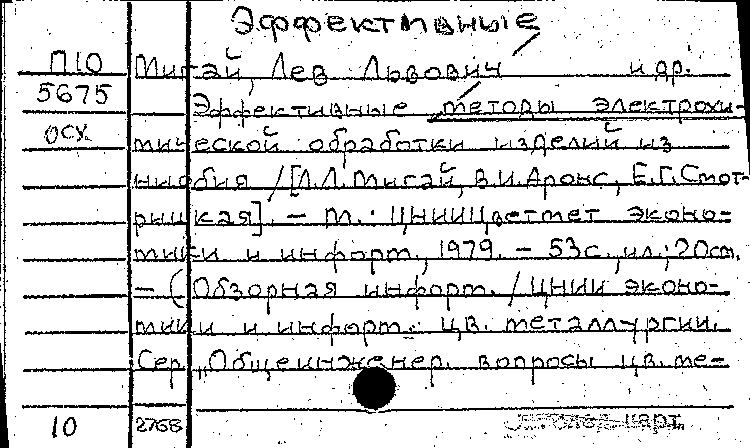 Эффективные
П10 Мигай, Лев Львович и др.
5675 Эффективные методы электрохи-
осх. мической обработки изделий из
ниобия / [Л.Л. Мигай, В.И. Аронс, Е.Г. Смот-
рицкая]. - М.: ЦНИИЦветмет эконо-
мики и информ., 1979. - 53 с., ил.; 20 см.
- (Обзорная информ. / ЦНИИ эконо-
мики и информ. цв. металлургии.
Сер. „Общеинженер. вопросы цв. ме-
10 2768